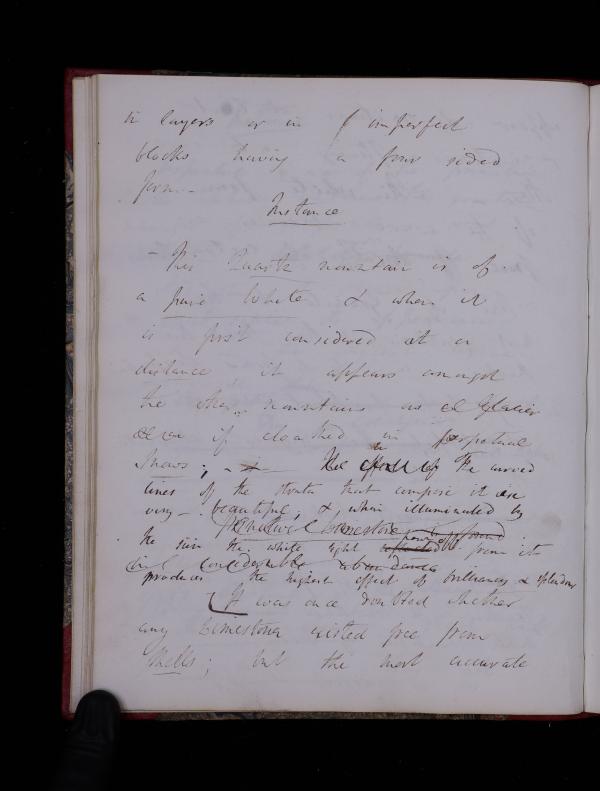 in layers or in imperfect
blocks having a four sided
form.-
Instance
- This Quartz mountain is of
a pure White & when it
is first considered at a
distance, it appears amongst
the other mountains as a Glacier
or as if cloathed in perpetual
Snows; - the effect of the curved
lines of the strata that compose it are
very - beautiful; & when illuminated by
Primitive Limestone is found
the sun the white light reflected from it
in considerable abundance
produces the highest effect of brilliancy & splendour
It was once doubted whether
any Limestone existed free from
Shells; but the most accurate